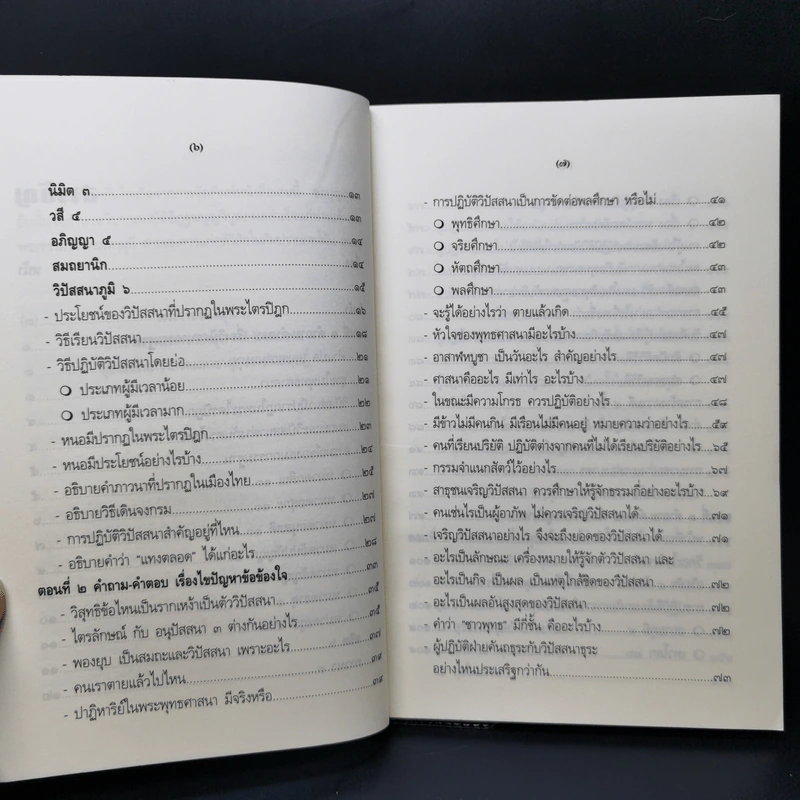 (๖)
นิมิต ๓ ๑๓
วสี ๕ ๑๓
อภิญญา ๕ ๑๔
สมถยานิก ๑๔
วิปัสสนาภูมิ ๖ ๑๕
- ประโยชน์ของวิปัสสนาที่ปรากฏในพระไตรปิฎก ๑๖
- วิธีเรียนวิปัสสนา ๑๘
- วิธีปฏิบัติวิปัสสนาโดยย่อ ๒๑
❍ ประเภทผู้มีเวลาน้อย ๒๑
❍ ประเภทผู้มีเวลามาก ๒๒
- หนอมีปรากฏในพระไตรปิฎก ๒๓
- หนอมีประโยชน์อย่างไรบ้าง ๒๔
- อธิบายคำภาวนาที่ปรากฏในเมืองไทย ๒๕
- อธิบายวิธีเดินจงกรม ๒๗
- การปฏิบัติวิปัสสนาสำคัญอยู่ที่ไหน ๒๗
- อธิบายคำว่า "แทงตลอด" ได้แก่อะไร ๒๘
ตอนที่ ๒ คำถาม-คำตอบ เรื่องไขปัญหาข้อข้องใจ
- วิสุทธิข้อไหนเป็นรากเหง้าเป็นตัววิปัสสนา ๓๕
- ไตรลักษณ์ กับ อนุปัสสนา ๓ ต่างกันอย่างไร ๓๕
- พองยุบ เป็นสมถะและวิปัสสนา เพราะอะไร ๓๗
- คนเราตายแล้วไปไหน ๓๙
- ปาฏิหาริย์ในพระพุทธศาสนา มีจริงหรือ ๓๙
(๗)
- การปฏิบัติวิปัสสนาเป็นการขัดต่อพลศึกษา หรือไม่ ๔๑
❍ พุทธิศึกษา ๔๒
❍ จริยศึกษา ๔๒
❍ หัตถศึกษา ๔๓
❍ พลศึกษา ๔๓
- จะรู้ได้อย่างไรว่า ตายแล้วเกิด ๔๕
- หัวใจของพุทธศาสนามีอะไรบ้าง ๔๗
- อาสาฬหบูชา เป็นวันอะไร สำคัญอย่างไร ๔๗
- ศาสนาคืออะไร มีเท่าไร อะไรบ้าง ๔๗
- ในขณะมีความโกรธ ควรปฏิบัติอย่างไร ๔๘
- มีข้าวไม่มีคนกิน มีเรือนไม่มีคนอยู่ หมายความว่าอย่างไร ๕๙
- คนที่เรียนปริยัติ ปฏิบัติต่างจากคนที่ไม่ได้เรียนปริยัติอย่างไร ๖๕
- กรรมจำแนกสัตว์ไว้อย่างไร ๖๗
- สาธุชนเจริญวิปัสสนา ควรศึกษาให้รู้จักธรรมกี่อย่างอะไรบ้าง ๖๙
- คนเช่นไรเป็นผู้อาภัพ ไม่ควรเจริญวิปัสสนาได้ ๗๑
- เจริญวิปัสสนาอย่างไร จึงจะถึงยอดของวิปัสสนาได้ ๗๑
- อะไรเป็นลักษณะ เครื่องหมายให้รู้จักตัววิปัสสนา และ
อะไรเป็นกิจ เป็นผล เป็นเหตุใกล้ชิดของวิปัสสนา ๗๒
- อะไรเป็นผลอันสูงสุดของวิปัสสนา ๗๒
- คำว่า "ชาวพุทธ" มีกี่ชั้น คืออะไรบ้าง ๗๒
- ผู้ปฏิบัติฝ่ายคันถธุระกับวิปัสสนาธุระ
อย่างไหนประเสริฐกว่ากัน ๗๓